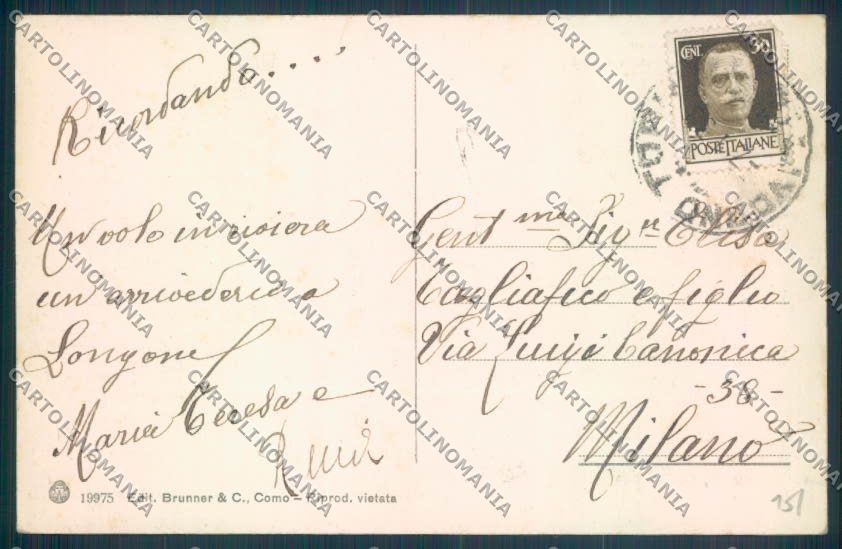 Ricordando....
Un volo in riviera
un arrivederci a
Longone
Maria Teresa e
19975 Edit. Brunner & C., Como – Riprod. vietata
CENT. 30
POSTE ITALIANE
Gent ma Sig ra Elisa
Tagliafico e figlio
Via Luigi Canonica
- 38 -
Milano
151
CARTOLINOMANIA